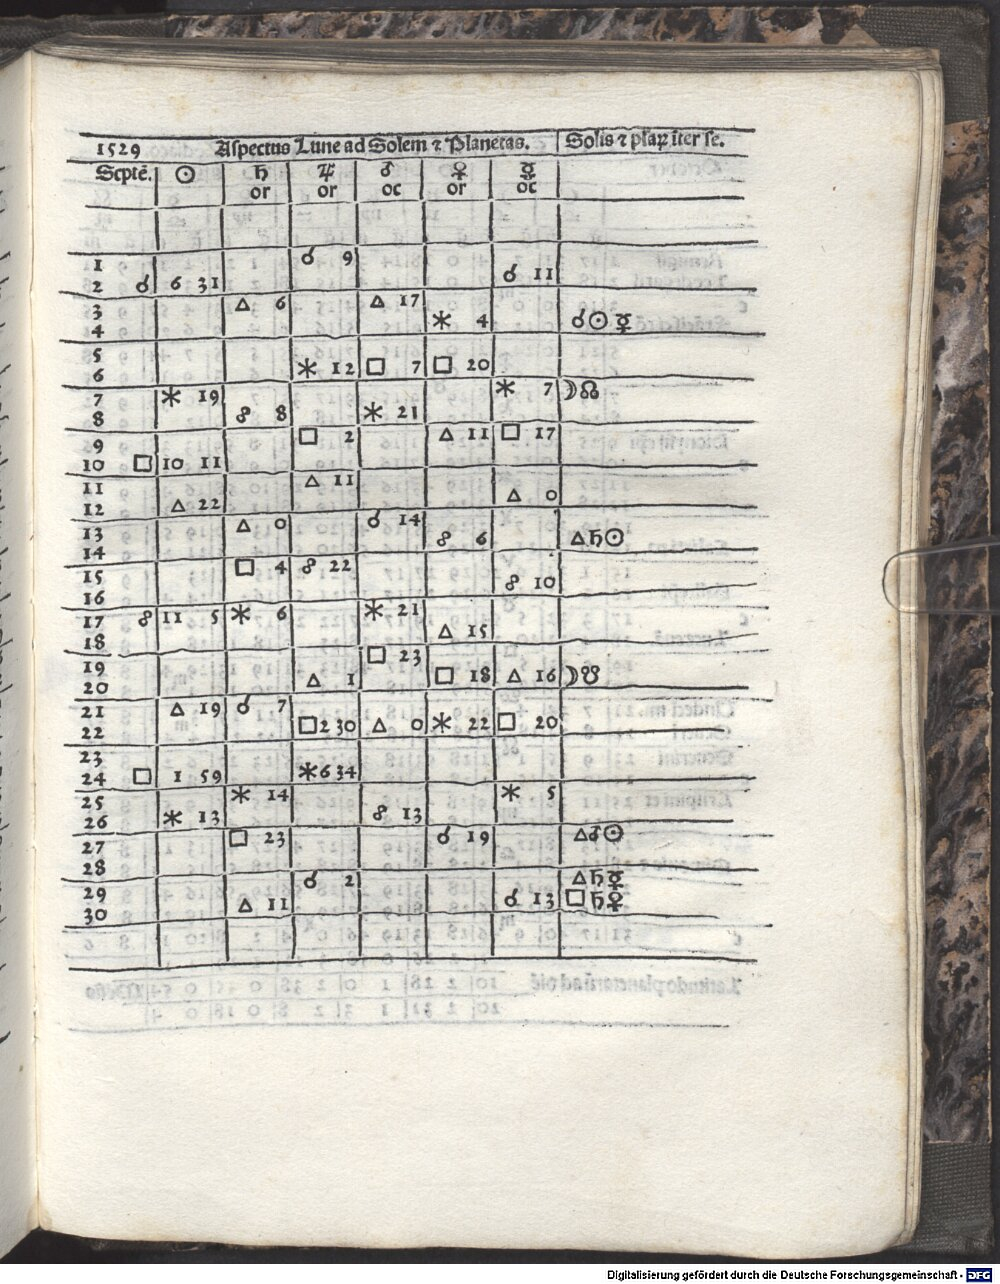 1529 Aspectus Lune ad Solem ⁊ Planetas. Solis ⁊ plaꝝ īter se.
Septē. ☉ ♄ ♃ ♂ ♀ ☿
or or oc or oc
1 ☌ 9
2 ☌ 6 31 ☌ 11
3 △ 6 △ 17
4 ⚹ 4 ☌☉☿
5
6 ⚹ 12 □ 7 □ 20
7 ⚹ 19 ⚹ 7 ☽☊
8 ☍ 8 ⚹ 21
9 □ 2 △ 11 □ 17
10 □ 10 11
11 △ 11
12 △ 22 △ 0
13 △ 0 ☌ 14
14 ☍ 6 △♄☉
15 □ 4 ☍ 22
16 ☍ 10
17 ☍ 11 5 ⚹ 6 ⚹ 21
18 △ 15
19 □ 23
20 △ 1 □ 18 △ 16 ☽☋
21 △ 19 ☌ 7
22 □ 2 30 △ 0 ⚹ 22 □ 20
23
24 □ 1 59 ⚹ 6 34
25 ⚹ 14 ⚹ 5
26 ⚹ 13 ☍ 13
27 □ 23 ☌ 19 △♂☉
28
29 ☌ 2 △♄☿
30 △ 11 ☌ 13 □♄♀
Digitalisierung gefördert durch die Deutsche Forschungsgemeinschaft - DFG